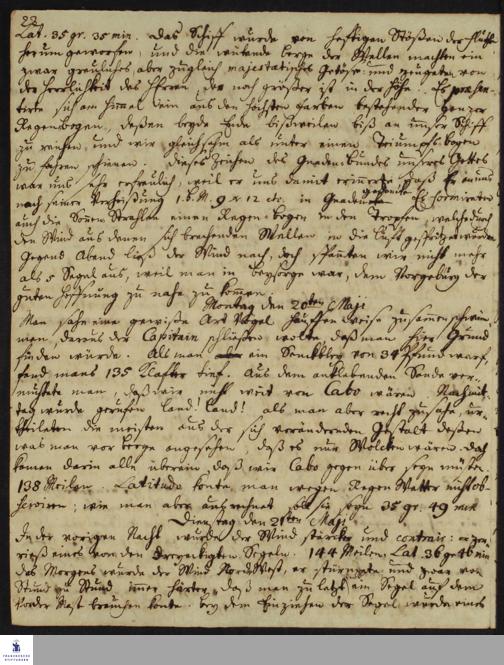 22
Lat. 35 gr. 35 min. Das Schiff wurde von heftigen Stößen der
herum geworfen, und die wütende berge der Wellen machten ein
zwar greuliches aber zugleich majestätisches Getöse und zeugeten von
der Herrlichkeit des Herrn, der noch größer ist in der Höhe. Es præsen-
tirte sich am Himmel ein aus den schönsten farben bestehender ganzer
Regenbogen, deßen beyde Ende bißweilen biß an unser Schiff
zu reichen, und wir gleichsam als unter einem Triumphbogen
zu fahren schienen. Dieses Zeichen des Gnaden bundes unseres Gottes
war uns sehr erfreulich, weil er uns damit erinnerte, daß Er an uns
nach seiner Verheißung 1. B. M. 9 v 12 etc. in Gnaden gedencke. Es formireten
auch die Sonnen Strahlen einen Regen-bogen in den Tropfen, welche durch
den Wind aus denen sich brechenden Wellen in die Luft gesprützet wurden
Gegen Abend ließ der Wind nach, doch spanten wir nicht mehr
als 5 Segel aus, weil man in beysorge war, dem Vorgebürg der
guten Hoffnung zu nahe zu kommen.
Montag den 20ten Maji
Man sahe eine gewiße Art Vögel hauffen weise zusammen schwim-
men, daraus der Capitain schließen wolte, daß man hier Grund
finden würde. Als man ein Senckbley von 34 Pfund warf,
fand mans 135 Klafter tief. Aus dem anklebenden Sande ver-
muthete man, daß wir nicht weit von Cabo wären. Nachmit-
tag wurde gerufen Land! Land! als man aber recht zusahe, ur-
theileten die meisten aus der sich verändernden Gestalt deßen
was man vor berge angesehen, daß es nur Wolcken wären. doch
kamen darin alle überein, daß wir Cabo gegen über seyn müsten.
138 Meilen. Latitudo konte man wegen Regen Wetter nicht ob-
serviren; wie man aber ausrechnet soll sie seyn 35 gr. 49 min
Dienstag den 21ten Maji
In der vorigen Nacht wurde der Wind stärcker und contrair: er zer-
riß eines von den Segeln. 144 Meilen. Lat. 36 gr. 46 min
des Morgens wurde der Wind Nord West, er stürmete und zwar von
Stund zu Stund immer härter, daß man zu letzt ein Segel auf dem
Vorder Mast brauchen konte. bey dem Einziehen der Segel wurde eines
FRANCKESCHE
STIFTUNGEN